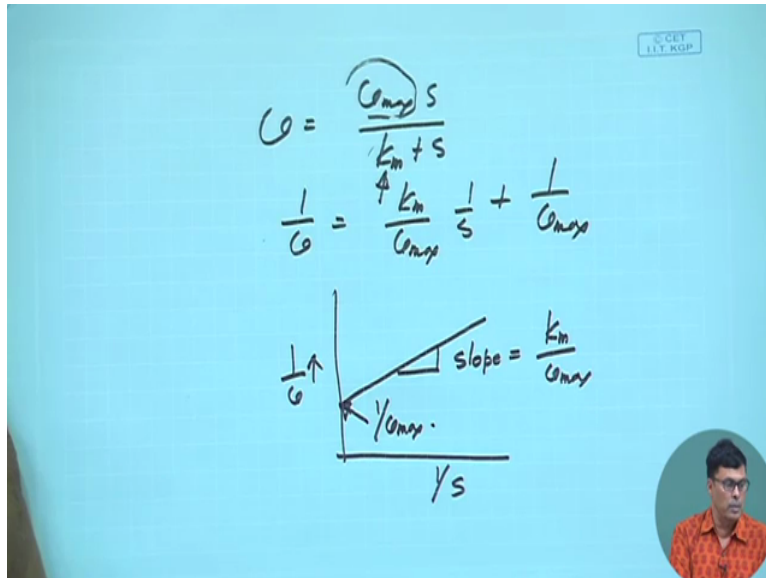 © CET
I.I.T. KGP
v = v_max s / (k_m + s)
1/v = k_m/v_max 1/s + 1/v_max
1/v ↑
slope = k_m/v_max
1/v_max.
1/s